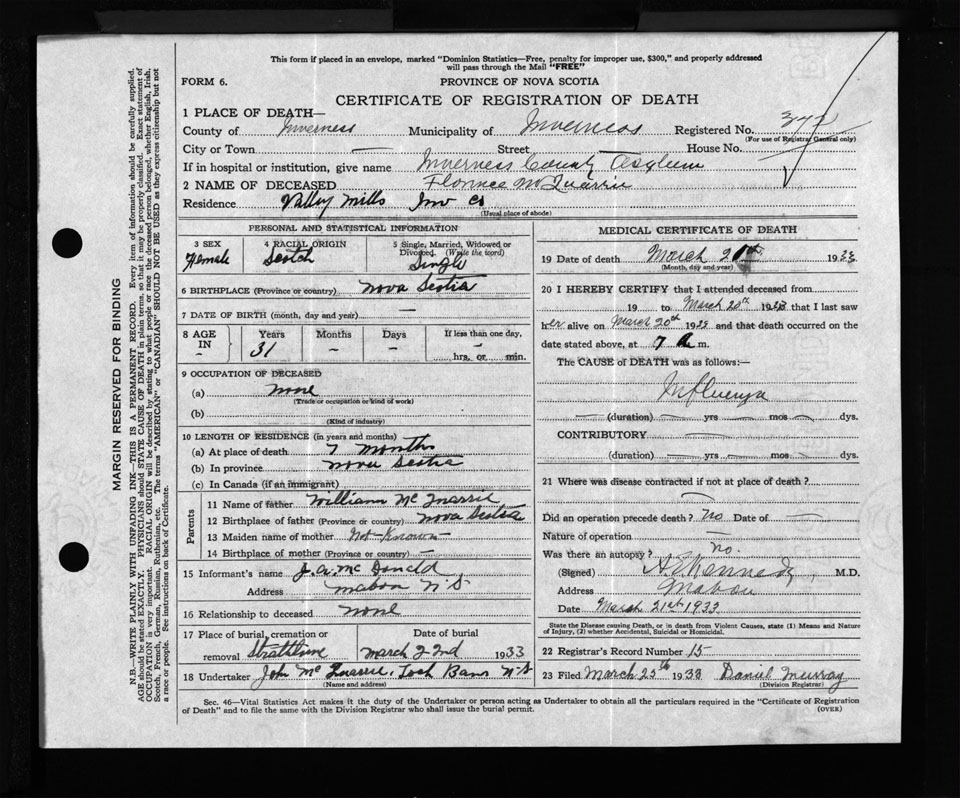 This form if placed in an envelope, marked "Dominion Statistics—Free, penalty for improper use, $300," and properly addressed
will pass through the Mail "FREE"
FORM 6.
PROVINCE OF NOVA SCOTIA
CERTIFICATE OF REGISTRATION OF DEATH
MARGIN RESERVED FOR BINDING
N.B.—WRITE PLAINLY WITH UNFADING INK—THIS IS A PERMANENT RECORD. Every item of information should be carefully supplied.
AGE should be stated EXACTLY. PHYSICIANS should STATE CAUSE OF DEATH in plain terms, so that it may be properly classified. Exact statement of
OCCUPATION is very important. RACIAL ORIGIN will be described by stating to what people or race the deceased person belonged, whether English, Irish,
Scotch, French, German, Russian, Ruthenian, etc. The terms "AMERICAN" or "CANADIAN" SHOULD NOT BE USED as they express citizenship but not
a race or people. See instructions on back of Certificate.
1 PLACE OF DEATH—
County of Inverness Municipality of Inverness Registered No. 372
(For use of Registrar General only)
City or Town — Street — House No. —
If in hospital or institution, give name Inverness County Asylum
2 NAME OF DECEASED Florence McQuarrie
Residence Valley Mills Inv Co
(Usual place of abode)
PERSONAL AND STATISTICAL INFORMATION
3 SEX Female
4 RACIAL ORIGIN Scotch
5 Single, Married, Widowed or Divorced. (Write the word) Single
6 BIRTHPLACE (Province or country) Nova Scotia
7 DATE OF BIRTH (month, day and year) —
8 AGE IN – Years 31 Months – Days – If less than one day, – hrs. or min.
9 OCCUPATION OF DECEASED
(a) none
(Trade or occupation or kind of work)
(b)
(Kind of industry)
10 LENGTH OF RESIDENCE (in years and months)
(a) At place of death 7 months
(b) In province Nova Scotia
(c) In Canada (if an immigrant)
Parents
11 Name of father William Mc Quarrie
12 Birthplace of father (Province or country) Nova Scotia
13 Maiden name of mother Not Known
14 Birthplace of mother (Province or country) —
15 Informant's name J. A. Mc Donald
Address Mabou N.S.
16 Relationship to deceased none
17 Place of burial, cremation or removal Strathlorne
Date of burial March 22nd 1933
18 Undertaker John Mc Quarrie, Loch Ban N.S
(Name and address)
MEDICAL CERTIFICATE OF DEATH
19 Date of death March 20th 1933
(Month, day and year)
20 I HEREBY CERTIFY that I attended deceased from
19 to March 20th 1933 that I last saw
her alive on March 20th 1933 and that death occurred on
date stated above, at 7 a m.
The CAUSE of DEATH was as follows:—
Influenza
— (duration) — yrs — mos — dys.
CONTRIBUTORY —
(duration) — yrs — mos — dys.
21 Where was disease contracted if not at place of death?
—
Did an operation precede death? No Date of —
Nature of operation —
Was there an autopsy? no.
(Signed) Kennedy, M.D.
Address Mabou
Date March 21st 1933
State the Disease causing Death, or in death from Violent Causes, state (1) Means and Nature
of Injury, (2) whether Accidental, Suicidal or Homicidal.
22 Registrar's Record Number 15
23 Filed March 25th 1933 Daniel Murray
(Division Registrar)
Sec. 46—Vital Statistics Act makes it the duty of the Undertaker or person acting as Undertaker to obtain all the particulars required in the "Certificate of Registration
of Death" and to file the same with the Division Registrar who shall issue the burial permit. (OVER)